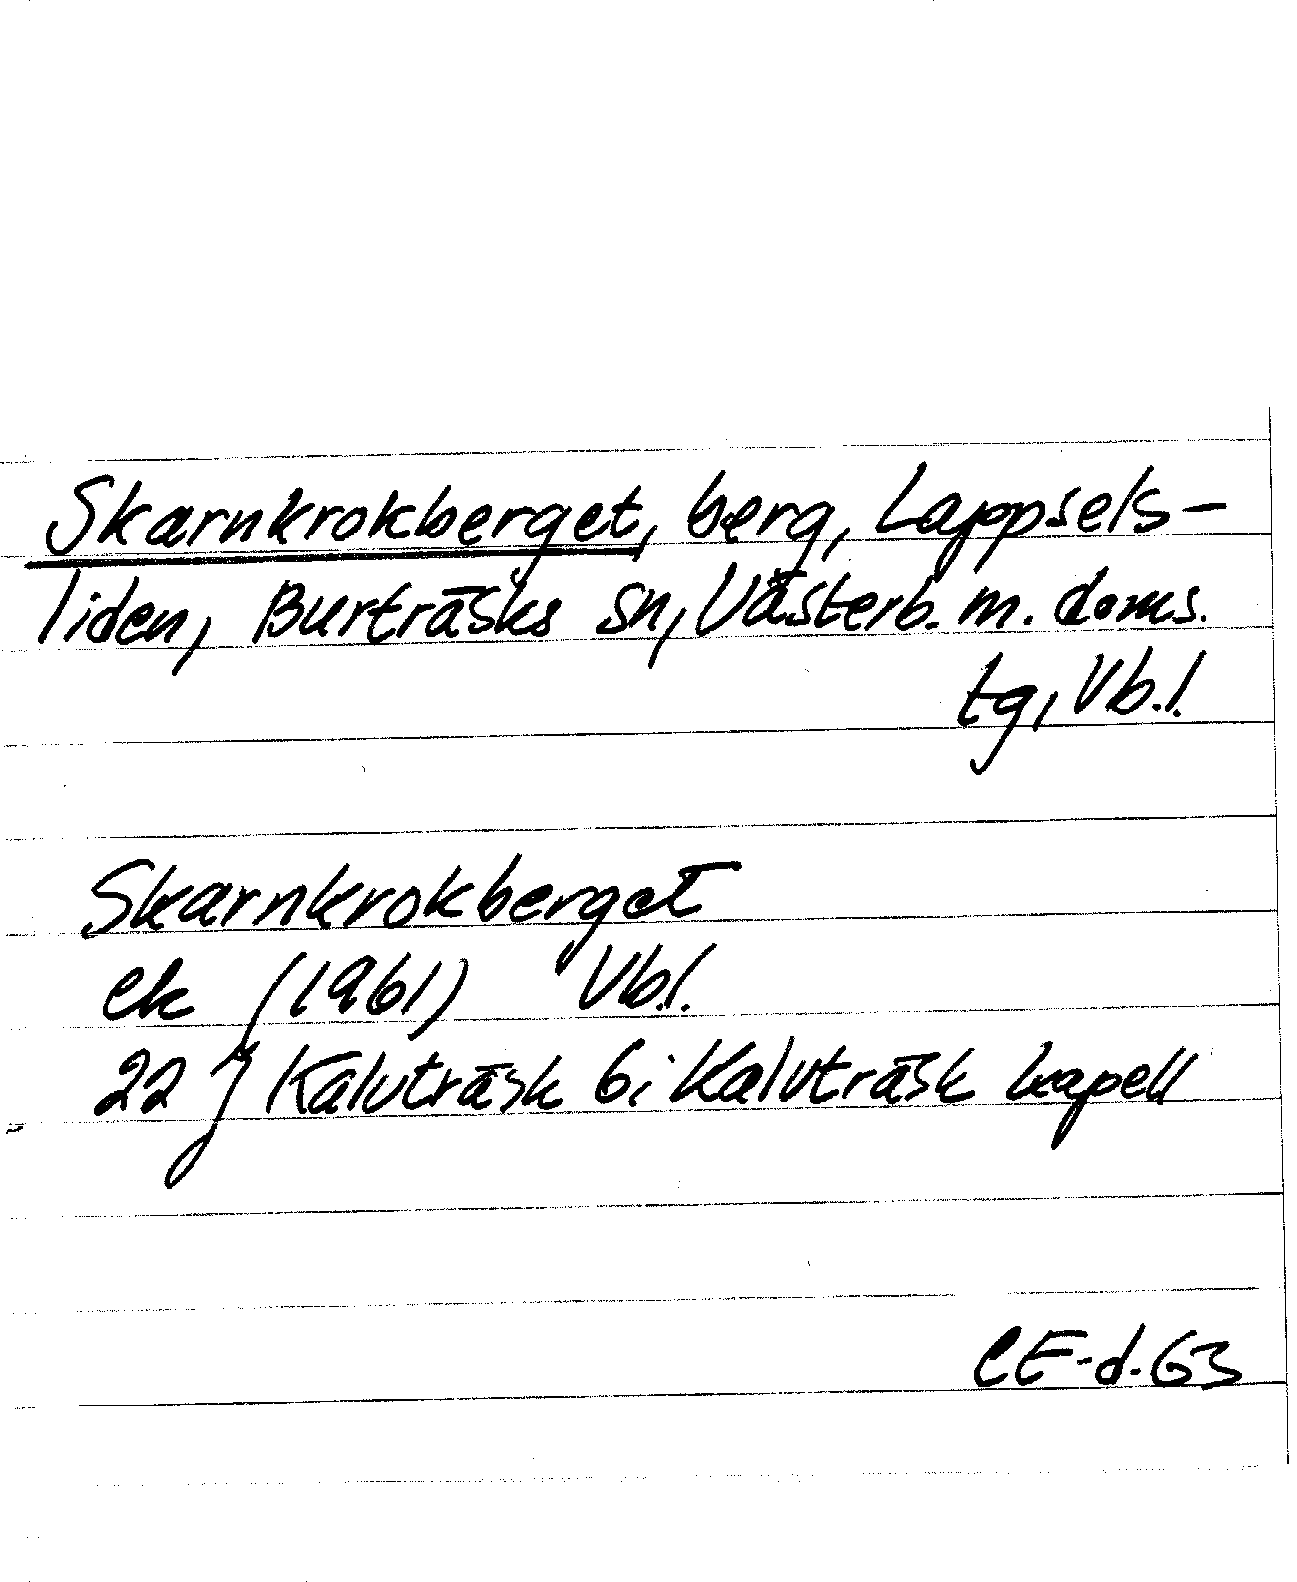 Skarnkrokberget, berg, Lappsels-
liden, Burträsks sn, Västerb. m. doms.
tg, Vb.l.
Skarnkrokberget
ek (1961) Vb.l.
22 J Kalvträsk 6i Kalvträsk kapell
CE-d. 63